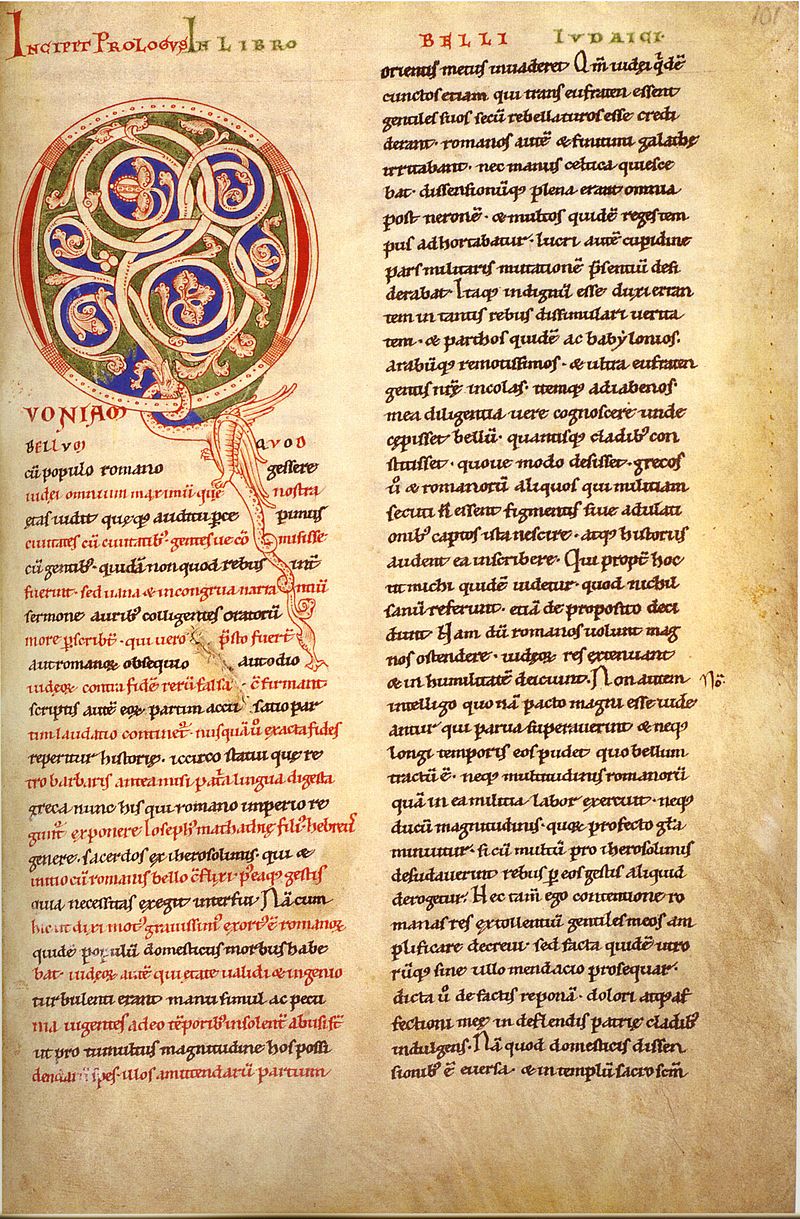 INCIPIT PROLOGUS IN LIBRO BELLI IVDAICI·
101
QVONIAM
BELLVM QVOD
cū populo romano gessere
iudei omnium maximū que nostra
ętas uidit queq; auditu ꝑcepimus
ciuitates cū ciuitatib; gentes ue cōmisisse
cū gentib; quidā non quod rebus int̄
fuerint· sed uana & incongrua narrantiū
sermone aurib; colligentes oratorū
more ꝑscribt̄· qui uero p̄sto fuert̄
aut romanoꝝ obsequio aut odio
iudeoꝝ contra fidē rerū falsa c̄firmant
scriptis autē eoꝝ partim accusatio par
tim laudatio continet᷑· nusquā ū exacta fides
reperitur historię· iccirco statui que re
tro barbaris antea misi pat̄a lingua digesta
greca nunc his qui romano imperio re
gunt᷑ exponere Ioseph; mathathię fili; hebrei;
genere· sacerdos ex iherosolimis· qui &
initio cū romanis bello c̄flixi p̄eaq; gestis
quia necessitas exegit interfui· Nā cum
hic ut dixi mot; grauissim; exort; ē romanoꝝ
quidē populū domesticus morbus habe
bat· iudeoꝝ autē qui ętate ualidi & ingenio
turbulenti erant manu simul ac pecu
nia uigentes adeo tēporib; insolent̄ abusi st̄
ut pro tumultus magnitudine hos possi
dendarū spes· illos amittendarū partium
orientis metus inuaderet· Qm̄ iudei q̇dē
cunctos etiam qui trans eufraten essent
gentiles suos secū rebellaturos esse credi
derant· romanos autē & finitimi galathę
irritabant· nec manus celtica quiesce
bat· dissensionūq; plena erant omnia
post neronē· & multos quidē reges tem
pus adhortabatur· lucri autē cupidine
pars militaris mutationē p̄sentiū desi
derabat· Itaq; indignū esse duxi erran
tem in tantis rebus dissimulari uerita
tem· & parthos quidē ac babylonios·
arabūq; remotissimos· & ultra eufraten
gentis nr̄ę incolas· itemq; adiabenos·
mea diligentia uere cognoscere unde
cępisset bellū· quantisq; cladib; con
stitisset· quoue modo desisset· grecos
ū & romanorū aliquos qui militiam
secuti n̄ essent figmentis siue adulati
onib; captos ista nescire· atq; historiis
audent ea inscribere· Qui propt̄ hoc
ut michi quidē uidetur· quod nichil
sanū referunt· etiā de proposito deci
dunt· Nam dū romanos uolunt mag
nos ostendere· iudeoꝝ res extenuant
& in humilitatē deiciunt· Non autem
intelligo quo nā pacto magni esse uide
No͞·
antur qui parua superauerint· & neq;
longi temporis eos pudet quo bellum
tractū ē· neq; multitudinis romanorū
quā in ea militia labor exercuit· neq;
ducū magnitudinis· quoꝝ profecto gl̄a
minuitur· si cū multū pro iherosolimis
desudauerint rebus ꝑ eos gestis aliquid
derogetur· Nec tam̄ ego contentione ro
manas res extollentiū gentiles meos am
plificare decreui· sed facta quidē utro
rūq; sine ullo mendacio prosequar·
dicta ū de factis reponā· dolori atq; af
fectioni meę in deflendis patrię cladib;
indulgens· Nā quod domesticis dissen
sionib; ē euersa· & in templū sacro scm̄